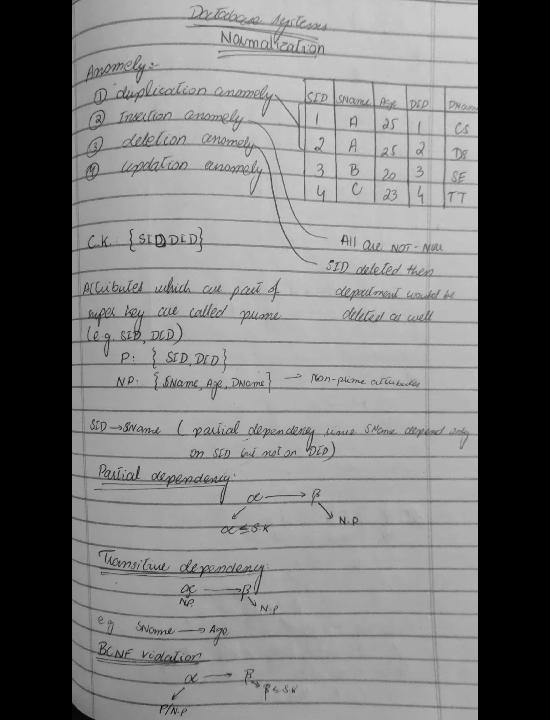 Database systems
Normalization
Anomely:-
① duplication anomely
② Insertion anomely
③ deletion anomely
④ updation anomely
SID SName Age DID DName
1 A 25 1 CS
2 A 25 2 DS
3 B 20 3 SE
4 C 23 4 TT
C.K: {SID, DID}
All are NOT-Null
SID deleted then
department would be
deleted as well
Attributes which are part of
super key are called prime
(e.g. SID, DID)
P: { SID, DID}
NP: {SName, Age, DName} → Non-prime attributes
SID → SName ( partial dependency since SName depend only
on SID but not on DID)
Partial dependency:
α → β
α ⊆ S.K N.P
Transitive dependency:
α → β
NP N.P
eg SName → Age
BCNF violation
α → β
P/N.P β ⊆ S.K